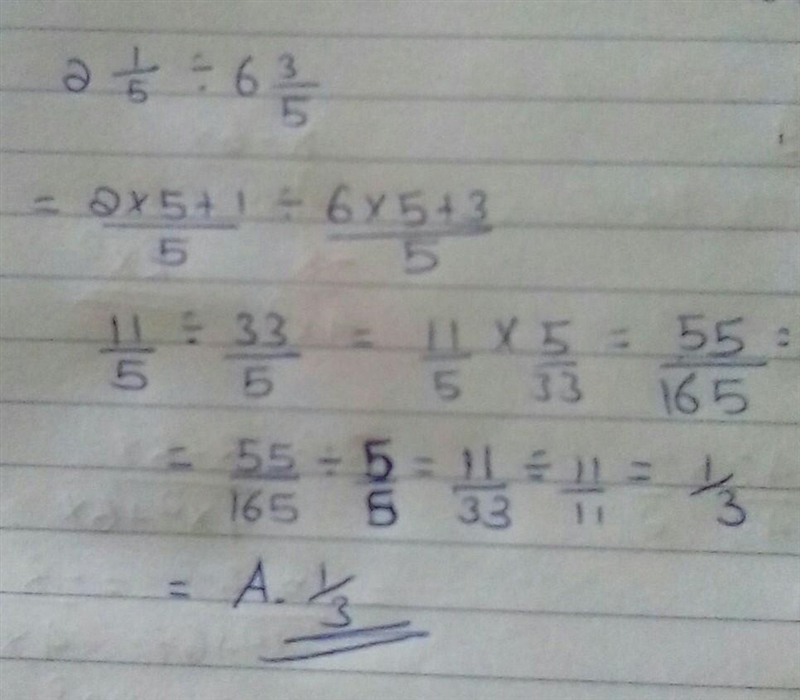 2 1/5 ÷ 6 3/5
= 2×5+1/5 ÷ 6×5+3/5
11/5 ÷ 33/5 = 11/5 × 5/33 = 55/165 =
= 55/165 ÷ 5/5 = 11/33 ÷ 11/11 = 1/3
= A. 1/3